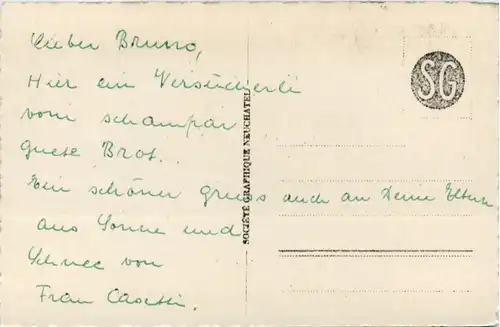 Lieber Bruno,
Hier ein Versücherli
vom schampar
guete Brot.
Ein schöner Gruss auch an Deine Eltern
aus Sonne und
Schnee von
Frau
SOCIÉTÉ GRAPHIQUE NEUCHATEL
SG